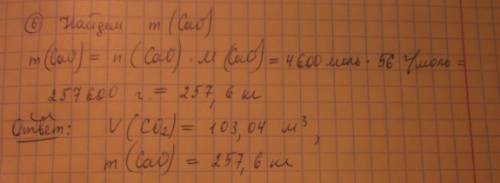 ⑥ Найдём m(CaO)
m(CaO) = n(CaO) · M(CaO) = 4600 моль · 56 г/моль =
257600 г. = 257,6 кг
Ответ: V(CO₂) = 103,04 м³,
m(CaO) = 257,6 кг